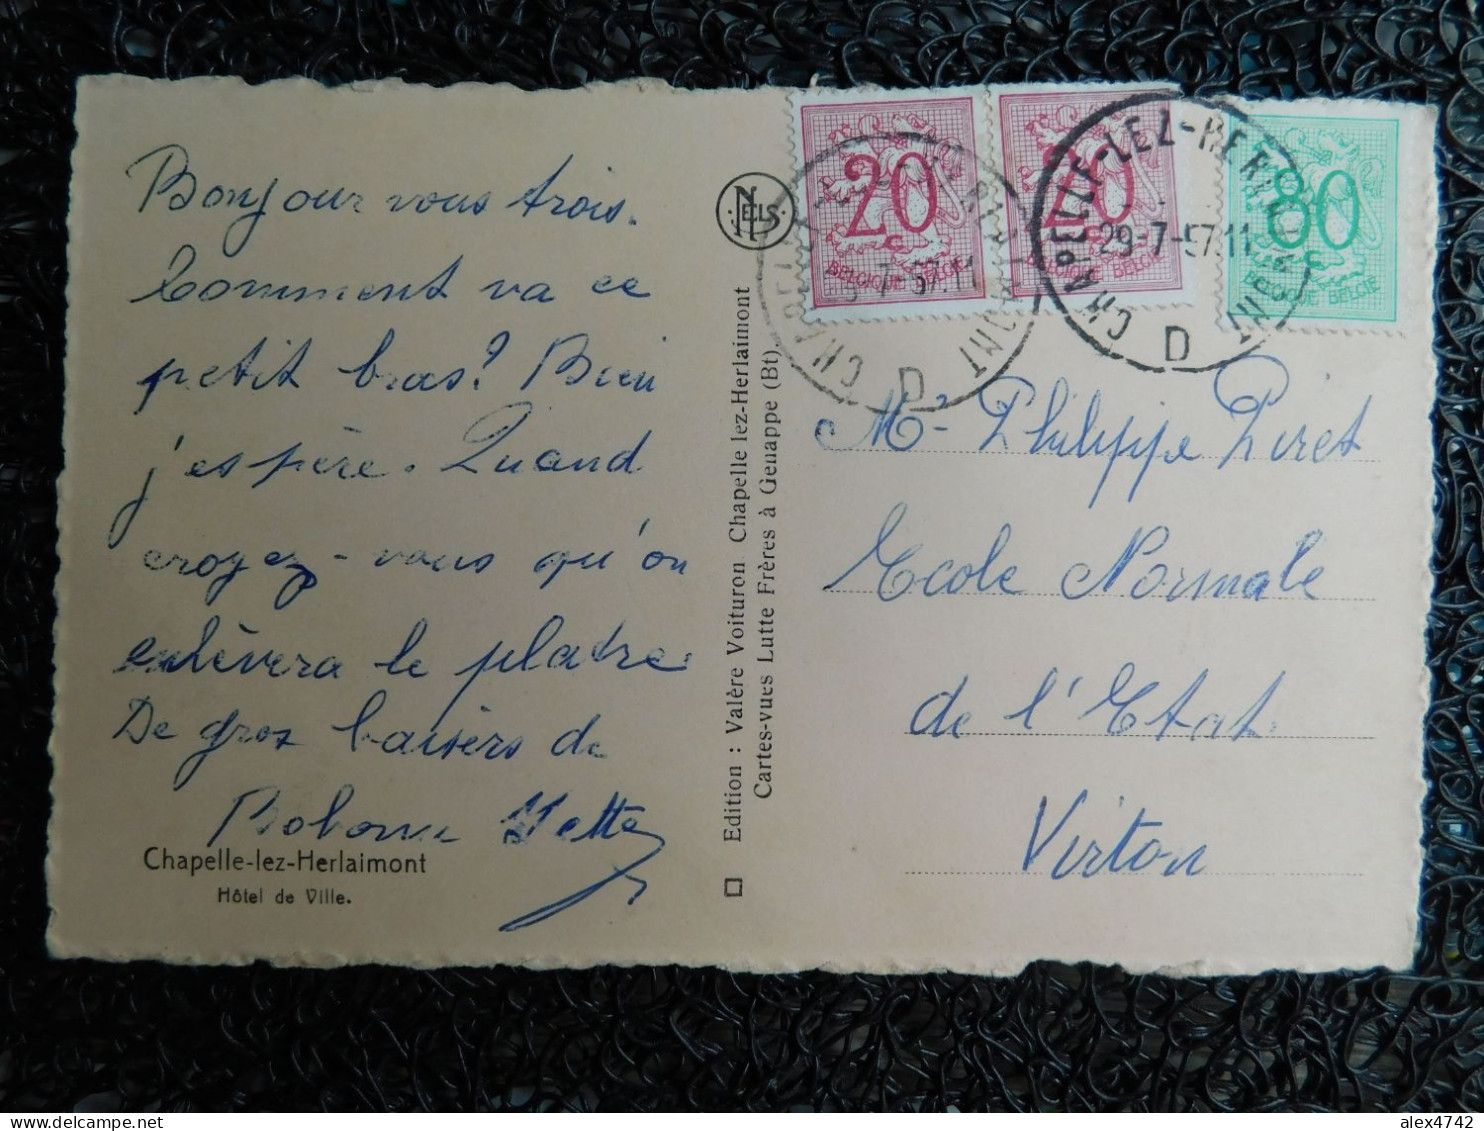 Bonjour vous trois.
Comment va ce
petit bras? Bien
j'espère. Quand
croyez-vous qu'on
enlèvera le platre
De gros baisers de
Chapelle-lez-Herlaimont
Hôtel de Ville.
NELS
Edition : Valère Voituron. Chapelle lez-Herlaimont
Cartes-vues Lutte Frères à Genappe (Bt).
20
BELGIQUE BELGIE
20
BELGIQUE BELGIE
80
BELGIQUE BELGIE
CHAPELLE-LEZ-HERLAIMONT
-7-57.11
D
CHAPELLE-LEZ-HERLAIMONT
29-7-57.11
D
Mr Philippe Piret
Ecole Normale
de l'Etat
Virton
alex4742